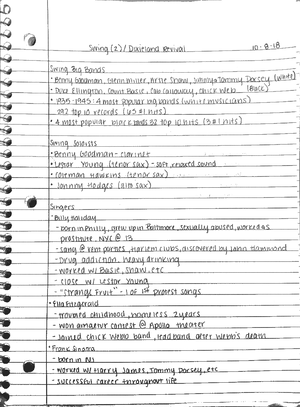 Swing (2) / Dixieland Revival 10-8-18
Swing Big Bands
• Benny Goodman, Glenn Miller, Artie Shaw, Jimmy & Tommy Dorsey (White)
• Duke Ellington, Count Basie, Cab Calloway, Chick Webb (Black)
• 1935-1945: 4 most popular big bands (white musicians)
292 top 10 records (65 #1 hits)
• 4 most popular black bands 32 top 10 hits (3 #1 hits)
Swing Soloists
• Benny Goodman - clarinet
• Lester Young (tenor sax) - soft relaxed sound
• Coleman Hawkins (tenor sax)
• Johnny Hodges (alto sax)
Singers
• Billy Holiday
- born in Philly, grew up in Baltimore, sexually abused, worked as
prostitute, NYC @ 13
- sang @ rent parties, Harlem clubs, discovered by John Hammond
- drug addiction, heavy drinking
- worked w/ Basie, Shaw, etc
- close w/ Lester Young
- "Strange Fruit" - 1 of 1st protest songs
• Ella Fitzgerald
- troubled childhood, homeless 2 years
- won amateur contest @ Apollo theater
- joined Chick Webb band, lead band after Webb's death
• Frank Sinatra
- born in NJ
- worked w/ Harry James, Tommy Dorsey, etc
- successful career throughout life